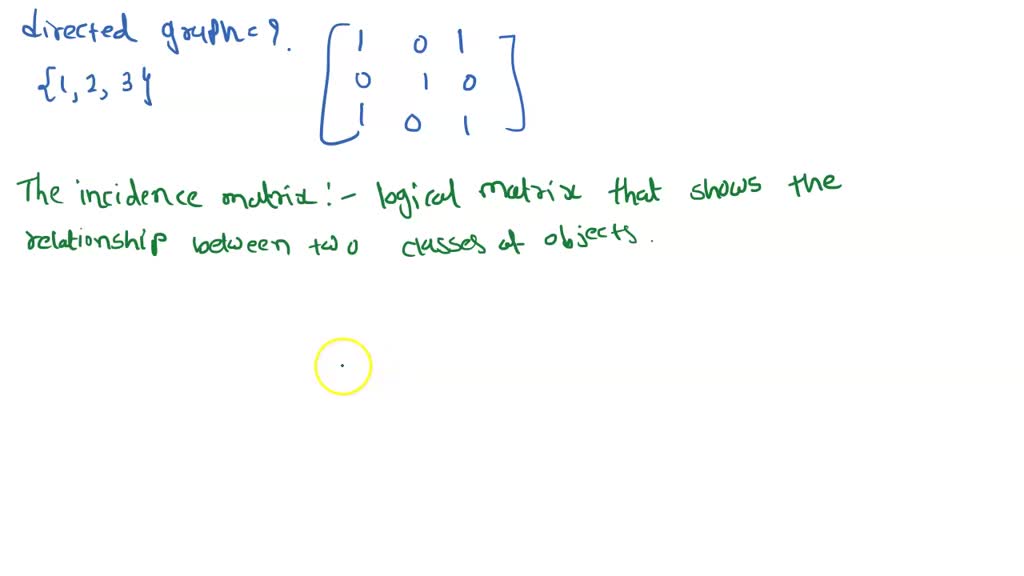 directed graph = ?.
{1, 2, 3}
1 0 1
0 1 0
1 0 1
The incidence matrix :- logical matrix that shows the
relationship between two classes of objects.